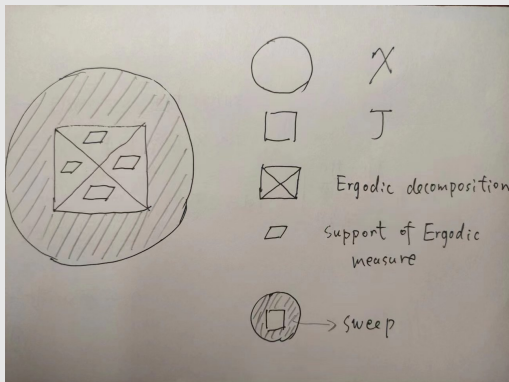 X
J
Ergodic decomposition
support of Ergodic
measure
sweep